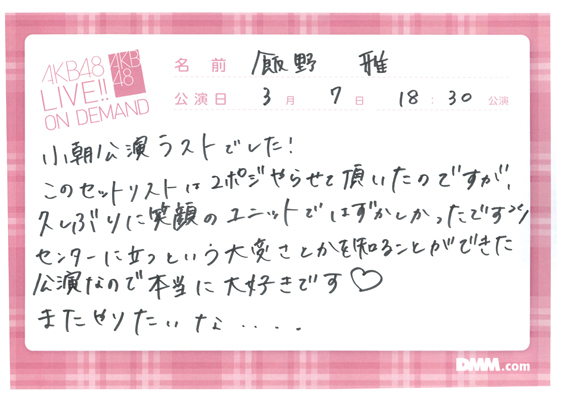 AKB48
LIVE!!
ON DEMAND
AKB
48
名前 飯野 雅
公演日 3月 7日 18:30公演
小朝公演ラストでした!
このセットリストは2ポジやらせて頂いたのですが、
久しぶりに笑顔のユニットではずかしかったです
センターに立つという大変さとかを知ることができた
公演なので本当に大好きです♡
またやりたいな....
DMM.com